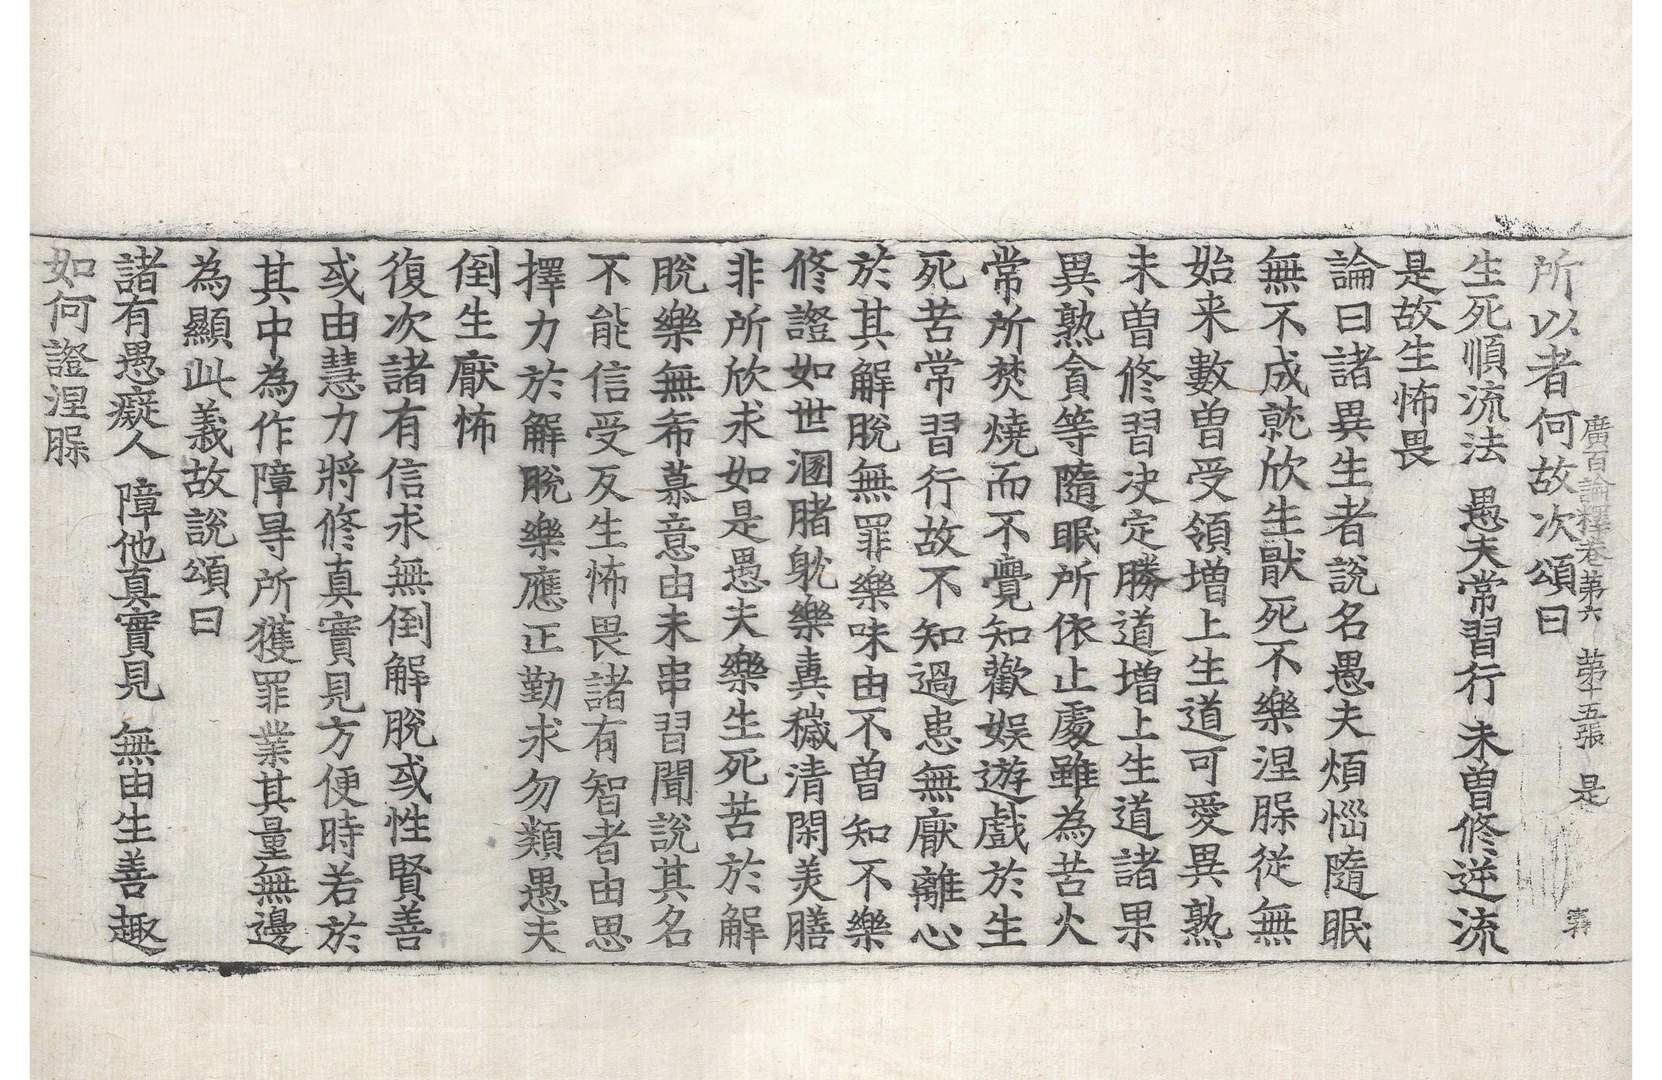 廣百論釋卷第六　第十五張　是
所以者何故次頌曰
生死順流法　愚夫常習行　未曾修逆流
是故生怖畏
論曰諸異生者說名愚夫煩惱隨眠
無不成就欣生猒死不樂涅脲從無
始来數曾受領增上生道可愛異熟
未曾修習决定勝道增上生道諸果
異熟貪等隨眠所依止處雖為苦火
常所焚燒而不覺知歡娛遊戲於生
死苦常習行故不知過患無厭離心
於其解脫無罪樂味由不曾知不樂
修證如世溷睹躭樂糞穢清閑美膳
非所欣求如是愚夫樂生死苦於解
脫樂無希慕意由未串習聞說其名
不能信受反生怖畏諸有智者由思
擇力於解脫樂應正勤求勿類愚夫
倒生厭怖
復次諸有信求無倒解脫或性賢善
或由慧力將修真實見方便時若於
其中為作障㝵所獲罪業其量無邊
為顯此義故說頌曰
諸有愚癡人　障他真實見　無由生善趣
如何證涅脲